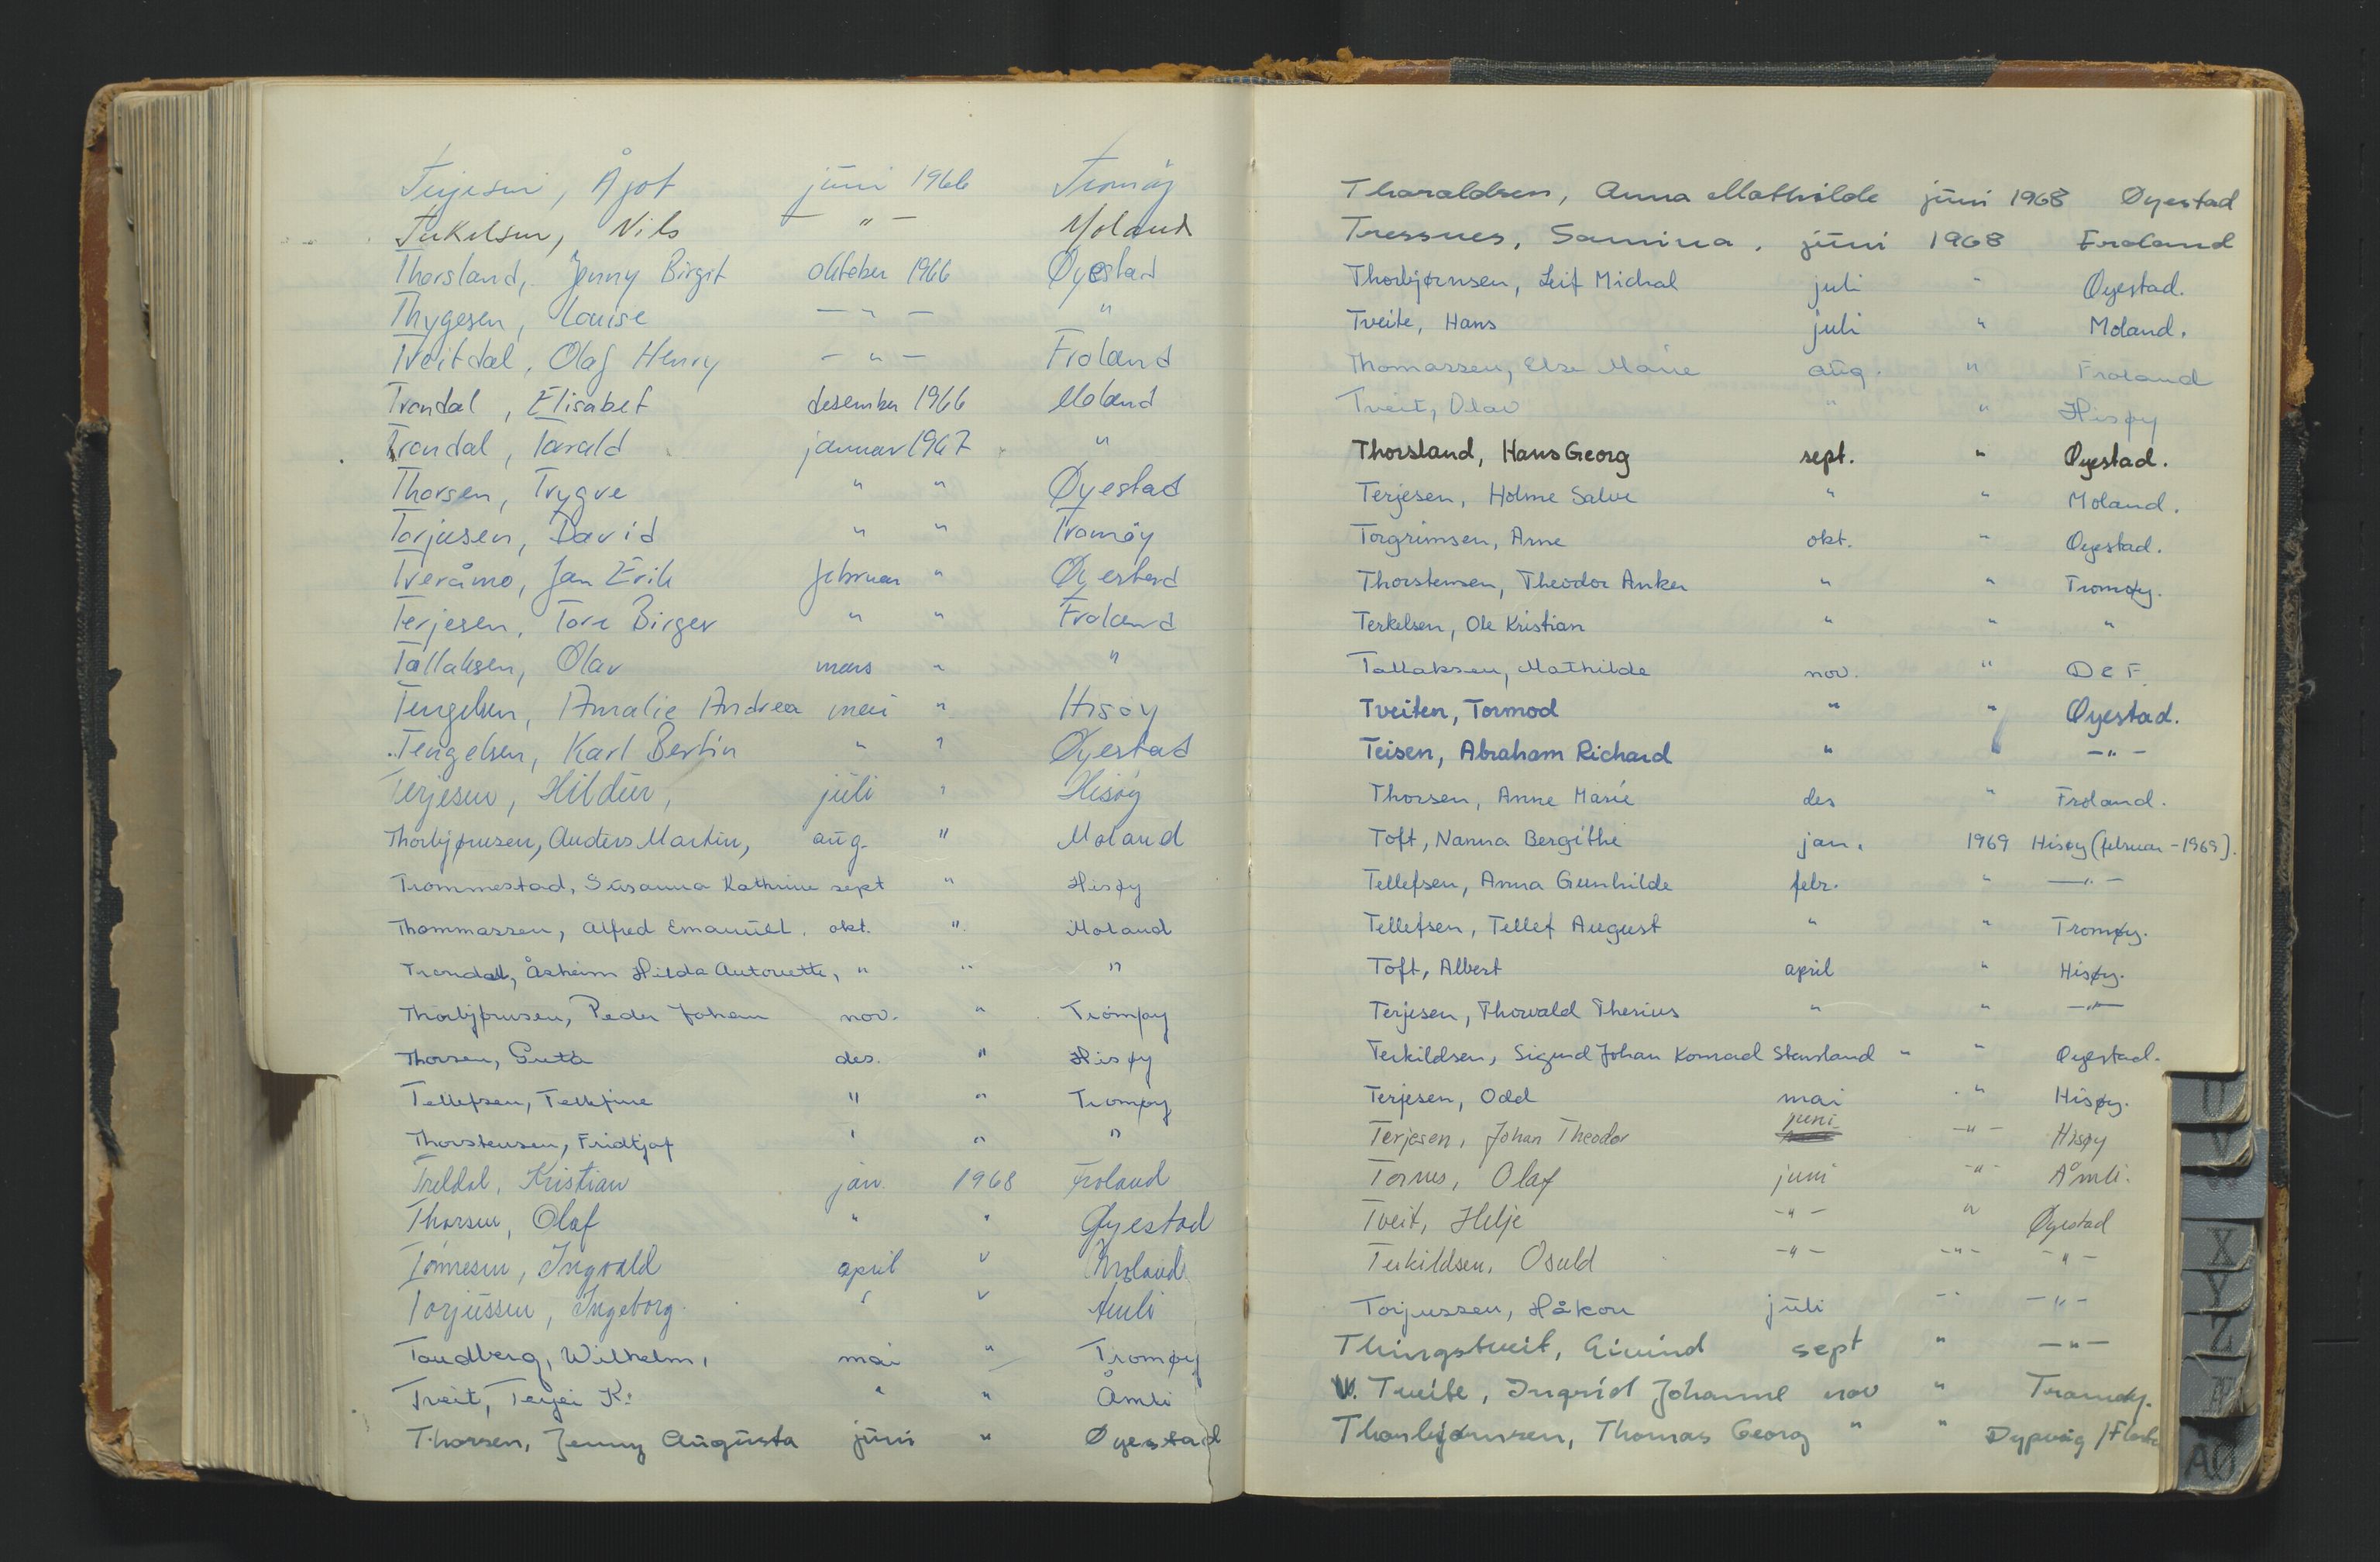 Terjesen, Ågot juni 1966 Tromöy
Terkelsen, Nils — " — Moland
Thorsland, Jenny Birgit oktober 1966 Øyestad
Thygesen, Louise — " — "
Tveitdal, Olaf Henry — " — Froland
Trondal, Elisabet desember 1966 Moland
Trondal, Tarald januar 1967 "
Thorsen, Trygve " " Øyestad
Torjusen, David " " Tromøy
Tveråmo, Jan Erik februar " Øyestad
Terjesen, Tore Birger " " Froland
Tallaksen, Olav mars " "
Tengelsen, Amalie Andrea mai " Hisøy
Tengelsen, Karl Bertin " " Øyestad
Terjesen, Hildur, juli " Hisöy
Thorbjørnsen, Anders Martin, aug. " Moland
Trommestad, Susanna Kathrine sept " Hisøy
Thommassen, Alfred Emanuel. okt. " Moland
Trondal, Åsheim Hilda Antonette, " " "
Thorbjørnsen, Peder Johan nov. " Tromøy
Thorsen, Greta des. " Hisøy
Tellefsen, Tellefine " " Tromøy
Thorstensen, Fridtjof " " "
Treldal, Kristian jan. 1968 Froland
Thorsen, Olaf " " Øyestad
Tönnesen, Ingvald april " Moland
Torjussen, Ingeborg. " " Åmli
Tandberg, Wilhelm, mai " Tromøy
Tveit, Terjei K. " " Åmli
Thorsen, Jenny Augusta juni " Øyestad
Tharaldsen, Anna Mathilde juni 1968 Øyestad
Tressnes, Samina. juni 1968 Froland
Thorbjørnsen, Leif Michal juli " Øyestad.
Tveite, Hans juli " Moland.
Thomassen, Else Marie aug. " Froland
Tveit, Olav " " Hisøy
Thorsland, Hans Georg sept. " Øyestad.
Terjesen, Holme Salve " " Moland.
Torgrimsen, Arne okt. " Øyestad.
Thorstensen, Theodor Anker " " Tromøy.
Terkelsen, Ole Kristian " " "
Tallaksen, Mathilde nov. " D E F.
Tveiten, Tormod " " Øyestad.
Teisen, Abraham Richard " " — " —
Thorsen, Anne Marie des " Froland.
Toft, Nanna Bergithe jan. 1969 Hisøy (februar - 1969).
Tellefsen, Anna Gunhilde febr. " — " —
Tellefsen, Tellef August " " Tromøy.
Toft, Albert april " Hisøy.
Terjesen, Thorvald Therius " " — " —
Terkildsen, Sigurd Johan Konrad Stensland " " Øyestad.
Terjesen, Odd mai " Hisøy.
Terjesen, Johan Theodor juni — " — Hisøy
Tornes, Olaf juni - " - Åmli.
Tveit, Helje - " - " Øyestad
Terkildsen, Osuld - " - - " - - " -
Torjussen, Håkon juli " - " -
Thingstveit, Eivind sept " — " —
Tveite, Ingrid Johanne nov " Tromøy.
Thorbjørnsen, Thomas Georg " " Dypvåg /
U
V
X
Y
Z
Æ
AØ